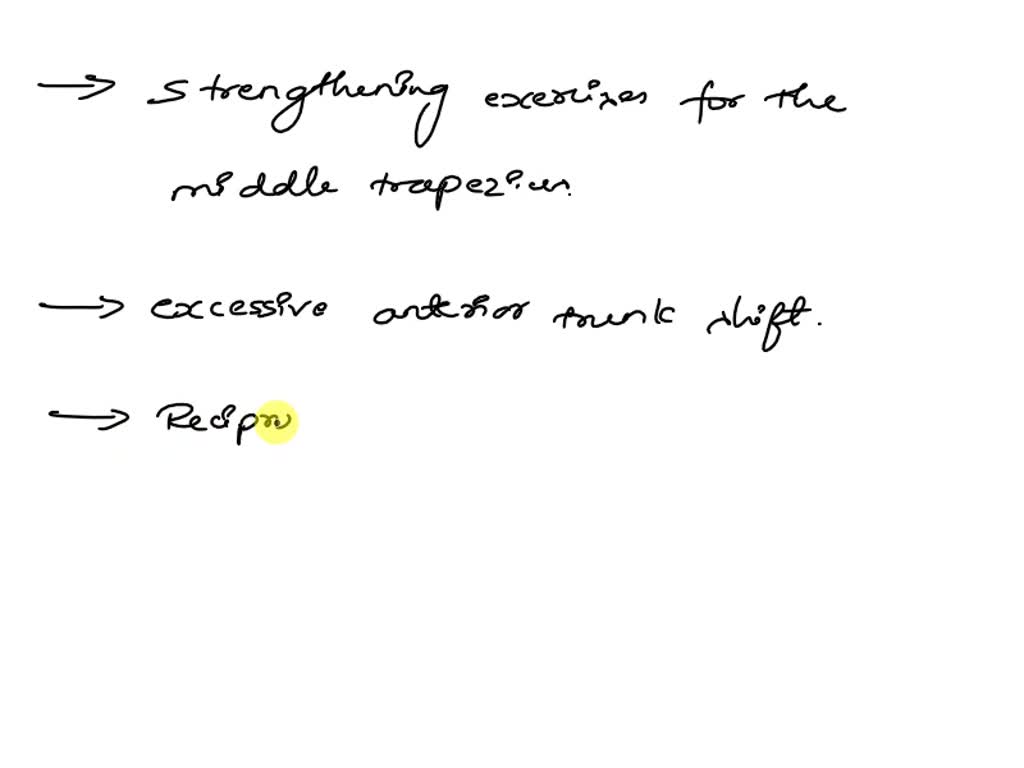 → Strengthening exercizes for the
middle trapezius.
→ excessive anterior trunk shift.
→ Recipro